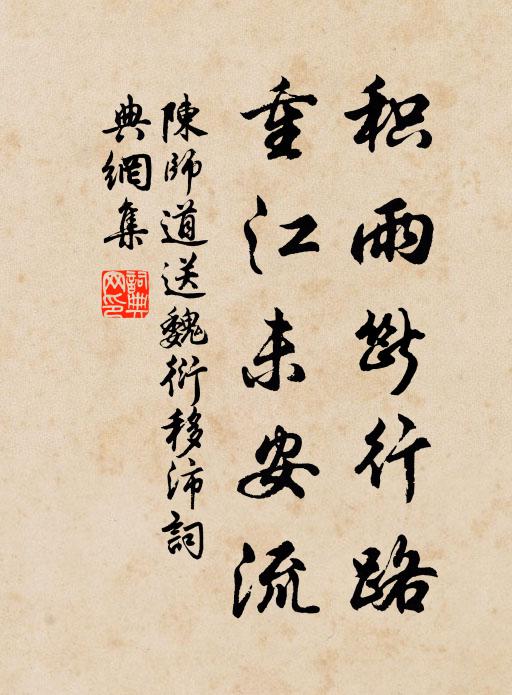 积雨断行路
重江未安流
陳師道送魏衍移沛詞
典網集
詞典
网印